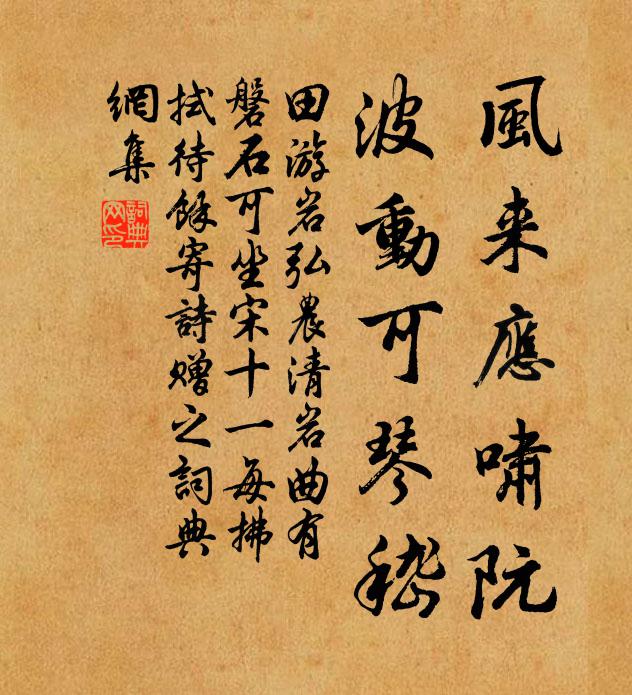 風来應嘯阮
波動可琴嵇
田游岩弘農清岩曲有
磐石可坐宋十一每拂
拭待馀寄詩贈之詞典
網集
詞典
网印